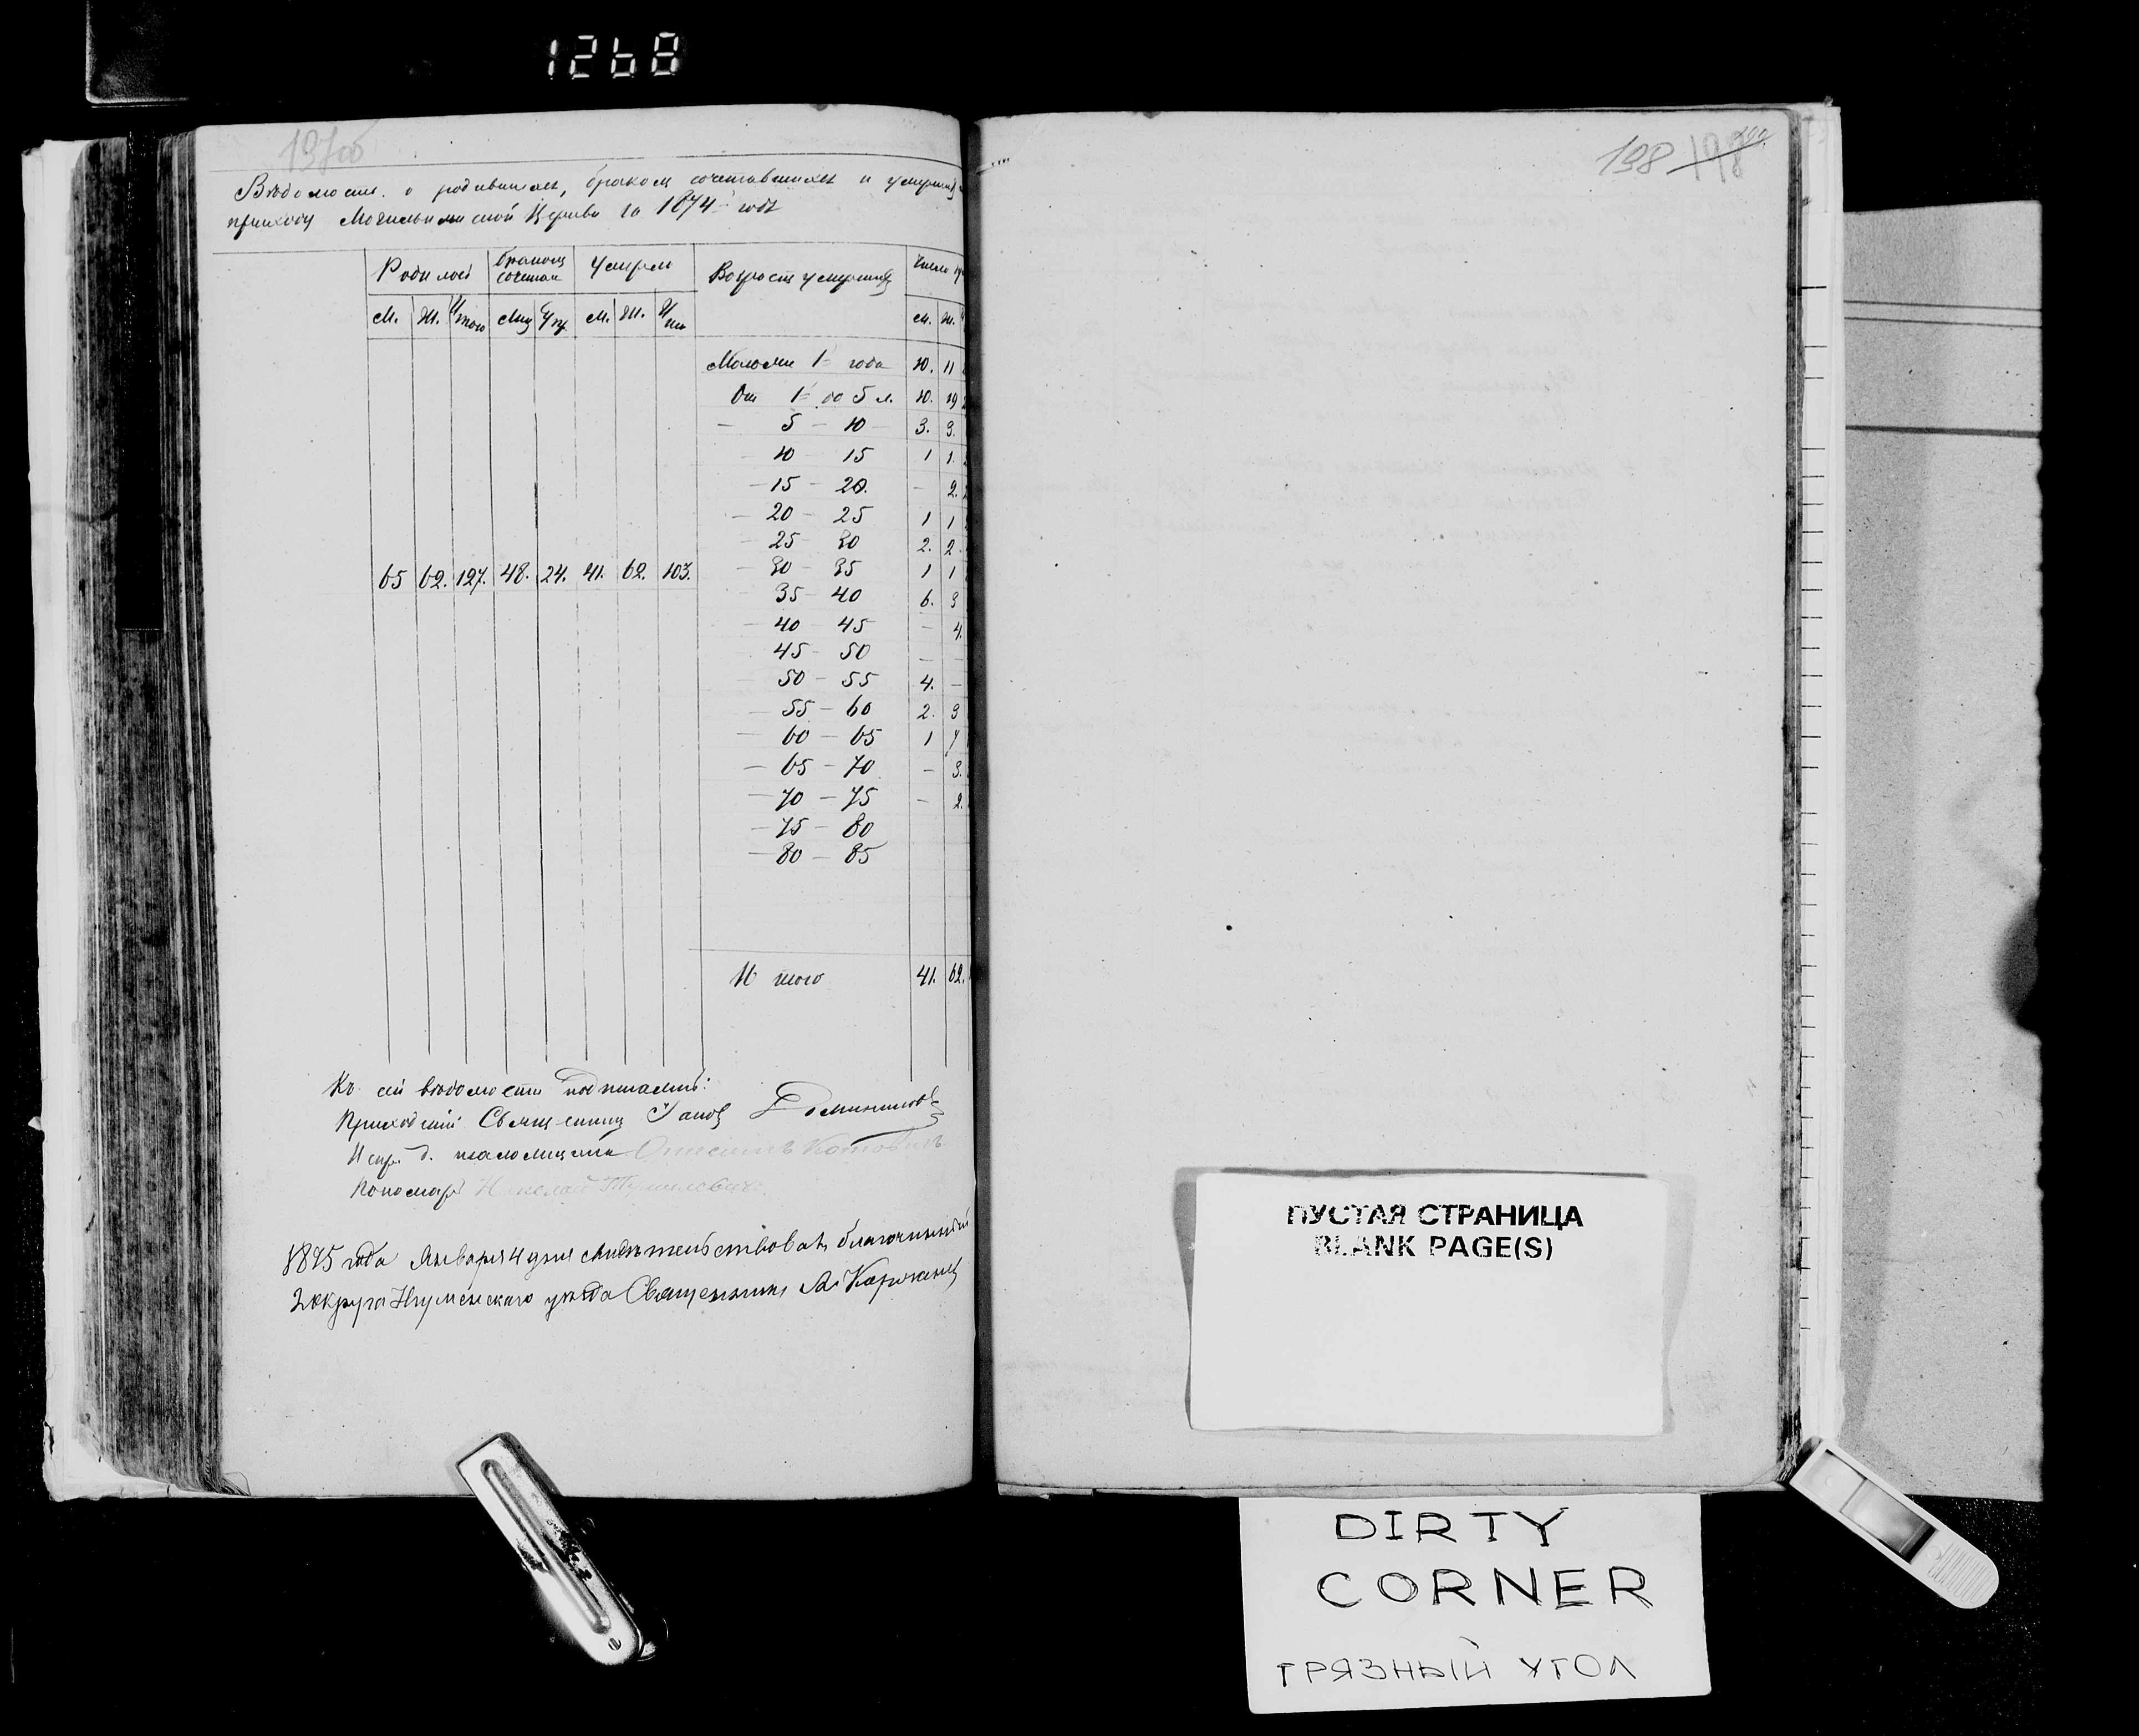 1268
197об
Вѣдомость о родившихся, бракомъ сочетавшихся и умершихъ
приходу Могильнянской Церкви за 1874 годъ
Родилось | бракомъ сочетан | Умерло | Возрастъ умершихъ | Число
М. | Ж. | Итого | Лиц | М. | Ж. | м. | ж.
Моложе 1 года 10. 11
От 1 до 5 л. 10. 19
— 5 — 10 — 3. 3.
10 15 1 1.
— 15 — 20. — 2.
— 20 — 25 1 1
— 25 — 30 2. 2.
65 | 62. | 127. | 48. | 24. | 41. | 62. | 103. — 30 — 35 1 1
35 — 40 6. 3
— 40 — 45 — 4.
45 — 50 — —
— 50 — 55 4. —
— 55 — 60 2. 3
— 60 — 65 1 7
— 65 — 70 — 3.
— 70 — 75 — 2.
— 75 — 80
— 80 — 85
Итого 41. 62.
Къ сей вѣдомости подписались:
Приходскій Священникъ
Испр. д. псаломщика Котовичъ
Пономарь Николай
года Января 4 дня свидѣтельствовалъ благочинный
2 округа Игуменскаго уѣзда Священникъ
198 198
ПУСТАЯ СТРАНИЦА
BLANK PAGE(S)
DIRTY
CORNER
ГРЯЗНЫЙ УГОЛ